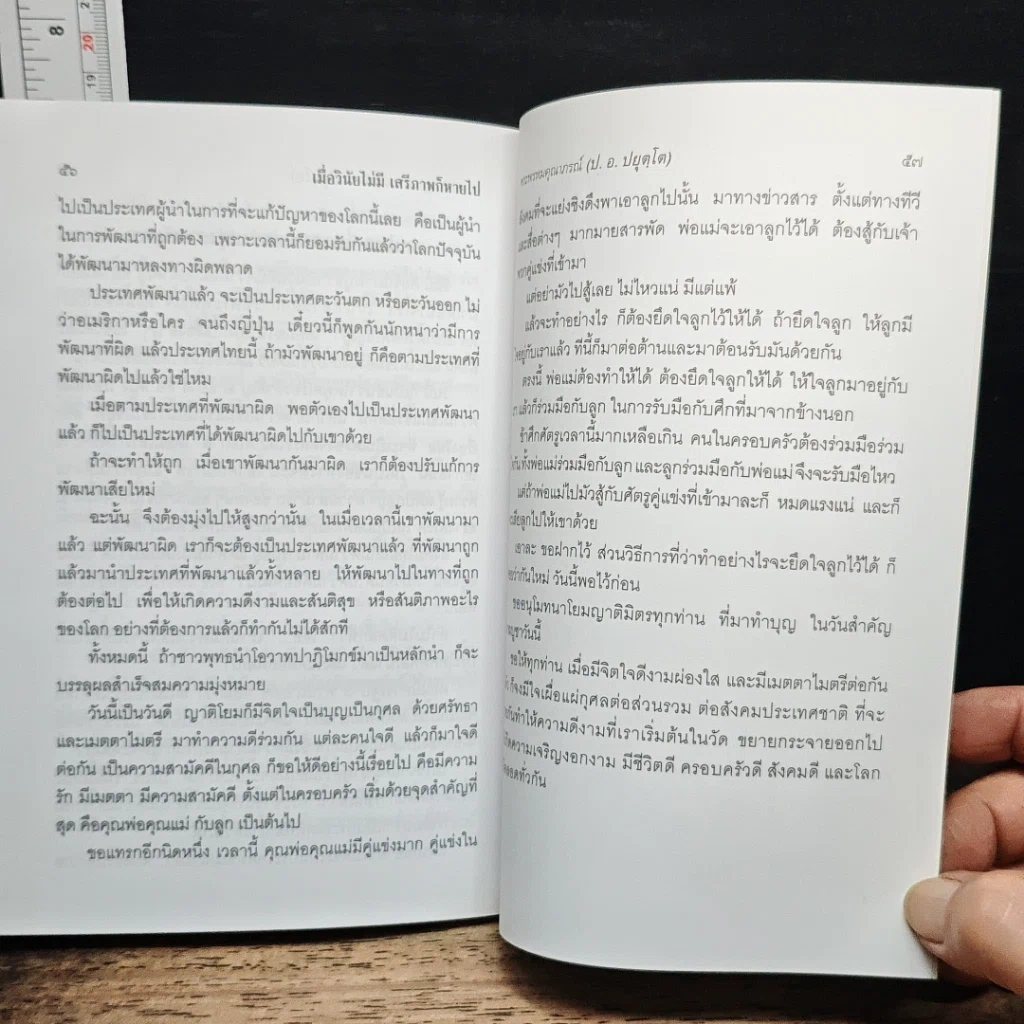 8
20
19
๕๖
เมื่อวินัยไม่มี เสรีภาพก็หายไป
ไปเป็นประเทศผู้นำในการที่จะแก้ปัญหาของโลกนี้เลย คือเป็นผู้นำ
ในการพัฒนาที่ถูกต้อง เพราะเวลานี้ก็ยอมรับกันแล้วว่าโลกปัจจุบัน
ได้พัฒนามาหลงทางผิดพลาด
ประเทศพัฒนาแล้ว จะเป็นประเทศตะวันตก หรือตะวันออก ไม่
ว่าอเมริกาหรือใคร จนถึงญี่ปุ่น เดี๋ยวนี้ก็พูดกันนักหนาว่ามีการ
พัฒนาที่ผิด แล้วประเทศไทยนี้ ถ้ามัวพัฒนาอยู่ ก็คือตามประเทศที่
พัฒนาผิดไปแล้วใช่ไหม
เมื่อตามประเทศที่พัฒนาผิด พอตัวเองไปเป็นประเทศพัฒนา
แล้ว ก็ไปเป็นประเทศที่ได้พัฒนาผิดไปกับเขาด้วย
ถ้าจะทำให้ถูก เมื่อเขาพัฒนากันมาผิด เราก็ต้องปรับแก้การ
พัฒนาเสียใหม่
ฉะนั้น จึงต้องมุ่งไปให้สูงกว่านั้น ในเมื่อเวลานี้เขาพัฒนามา
แล้ว แต่พัฒนาผิด เราก็จะต้องเป็นประเทศพัฒนาแล้ว ที่พัฒนาถูก
แล้วมานำประเทศที่พัฒนาแล้วทั้งหลาย ให้พัฒนาไปในทางที่ถูก
ต้องต่อไป เพื่อให้เกิดความดีงามและสันติสุข หรือสันติภาพอะไร
ของโลก อย่างที่ต้องการแล้วก็ทำกันไม่ได้สักที
ทั้งหมดนี้ ถ้าชาวพุทธนำโอวาทปาฏิโมกข์มาเป็นหลักนำ ก็จะ
บรรลุผลสำเร็จสมความมุ่งหมาย
วันนี้เป็นวันดี ญาติโยมก็มีจิตใจเป็นบุญเป็นกุศล ด้วยศรัทธา
และเมตตาไมตรี มาทำความดีร่วมกัน แต่ละคนใจดี แล้วก็มาใจดี
ต่อกัน เป็นความสามัคคีในกุศล ก็ขอให้ดีอย่างนี้เรื่อยไป คือมีความ
รัก มีเมตตา มีความสามัคคี ตั้งแต่ในครอบครัว เริ่มด้วยจุดสำคัญที่
สุด คือคุณพ่อคุณแม่ กับลูก เป็นต้นไป
ขอแทรกอีกนิดหนึ่ง เวลานี้ คุณพ่อคุณแม่มีคู่แข่งมาก คู่แข่งใน
พระพรหมคุณาภรณ์ (ป. อ. ปยุตฺโต)
๕๗
สังคมที่จะแย่งชิงดึงพาเอาลูกไปนั้น มาทางข่าวสาร ตั้งแต่ทางทีวี
และสื่อต่างๆ มากมายสารพัด พ่อแม่จะเอาลูกไว้ได้ ต้องสู้กับเจ้า
พวกคู่แข่งที่เข้ามา
แต่อย่ามัวไปสู้เลย ไม่ไหวแน่ มีแต่แพ้
แล้วจะทำอย่างไร ก็ต้องยึดใจลูกไว้ให้ได้ ถ้ายึดใจลูก ให้ลูกมี
ใจอยู่กับเราแล้ว ทีนี้ก็มาต่อต้านและมาต้อนรับมันด้วยกัน
ตรงนี้ พ่อแม่ต้องทำให้ได้ ต้องยึดใจลูกให้ได้ ให้ใจลูกมาอยู่กับ
แล้วก็ร่วมมือกับลูก ในการรับมือกับศึกที่มาจากข้างนอก
ข้าศึกศัตรูเวลานี้มากเหลือเกิน คนในครอบครัวต้องร่วมมือร่วม
ทั้งพ่อแม่ร่วมมือกับลูก และลูกร่วมมือกับพ่อแม่ จึงจะรับมือไหว
แต่ถ้าพ่อแม่ไปมัวสู้กับศัตรูคู่แข่งที่เข้ามาละก็ หมดแรงแน่ และก็
เสียลูกไปให้เขาด้วย
เอาละ ขอฝากไว้ ส่วนวิธีการที่ว่าทำอย่างไรจะยึดใจลูกไว้ได้ ก็
ว่ากันใหม่ วันนี้พอไว้ก่อน
ขออนุโมทนาโยมญาติมิตรทุกท่าน ที่มาทำบุญ ในวันสำคัญ
บูชาวันนี้
ขอให้ทุกท่าน เมื่อมีจิตใจดีงามผ่องใส และมีเมตตาไมตรีต่อกัน
ก็จงมีใจเผื่อแผ่กุศลต่อส่วนรวม ต่อสังคมประเทศชาติ ที่จะ
กันทำให้ความดีงามที่เราเริ่มต้นในวัด ขยายกระจายออกไป
เกิดความเจริญงอกงาม มีชีวิตดี ครอบครัวดี สังคมดี และโลก
ตลอดทั่วกัน